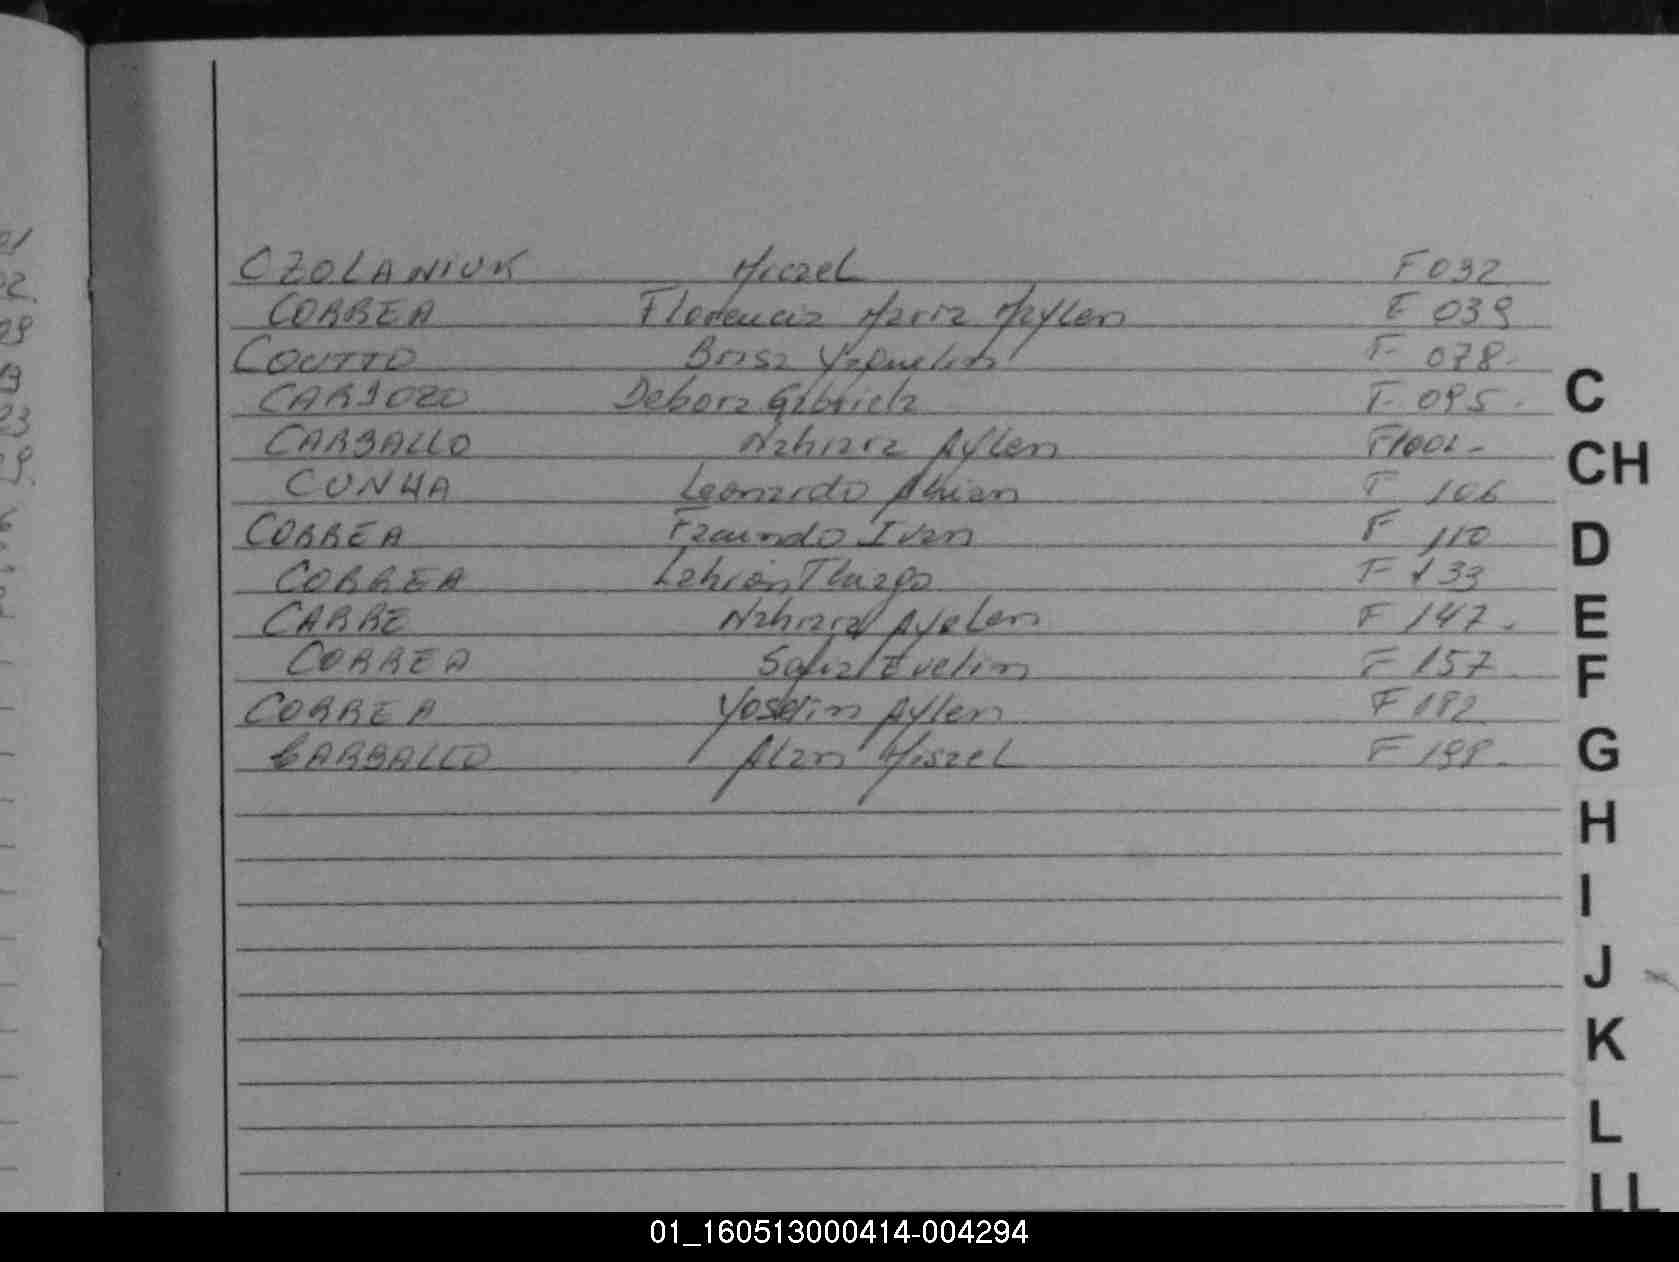 CZOLANIUK Micael F 032
CORREA Florencia Maria Maylen F 039
COUTTO Brisa Yaquelin F 078-
CARDOZO Debora Gabriela F 095-
CARBALLO Nahiara Aylen F
CUNHA Leonardo F 106
CORREA Facundo Ivan F 110
CORREA Thiago F 133
CARRE Nahiara Ayelen F 147-
CORREA Sofia Evelin F 157
CORREA Yoselin Aylen F 182
CARBALLO Alan Misael F 198-
C
CH
D
E
F
G
H
I
J
K
L
LL
01_160513000414-004294